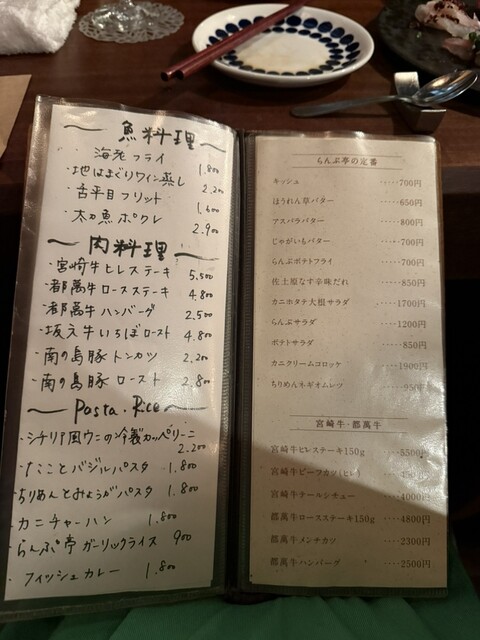 魚料理
海老フライ 1.800
・地はまぐりワイン蒸し 2.200
・舌平目フリット 1.600
・太刀魚ポワレ 2.900
肉料理
・宮崎牛ヒレステーキ 5.500
・都萬牛ロースステーキ 4.800
・都萬牛ハンバーグ 2.500
・坂元牛いちぼロースト 4.800
・南の島豚トンカツ 2.200
・南の島豚ロースト 2.800
Pasta・Rice
・シチリア風ウニの冷製カッペリーニ 2.200
・たことバジルパスタ 1.800
・ちりめんとみょうがパスタ 1.800
・カニチャーハン 1.800
・らんぷ亭ガーリックライス 900
・フィッシュカレー 1.800
らんぷ亭の定番
キッシュ ‥‥700円
ほうれん草バター ‥‥650円
アスパラバター ‥‥800円
じゃがいもバター ‥‥700円
らんぷポテトフライ ‥‥700円
佐土原なす辛味だれ ‥‥850円
カニホタテ大根サラダ ‥‥1700円
らんぷサラダ ‥‥1200円
ポテトサラダ ‥‥850円
カニクリームコロッケ ‥‥1900円
ちりめんネギオムレツ ‥‥950円
宮崎牛・都萬牛
宮崎牛ヒレステーキ150g ‥‥5500円
宮崎牛ビーフカツ(ヒレ)
宮崎牛テールシチュー ‥‥4000円
都萬牛ロースステーキ150g ‥‥4800円
都萬牛メンチカツ ‥‥2300円
都萬牛ハンバーグ ‥‥2500円